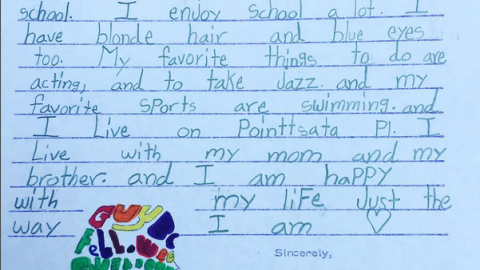 school. I enjoy school a lot. I
have blonde hair and blue eyes
too. My favorite things to do are
acting, and to take Jazz. and my
favorite sports are swimming. and
I Live on Pointtsata Pl. I
Live with my mom and my
brother. and I am haPPY
with my liFe Just the
way I am
GUY
FELL.
Sincerely,